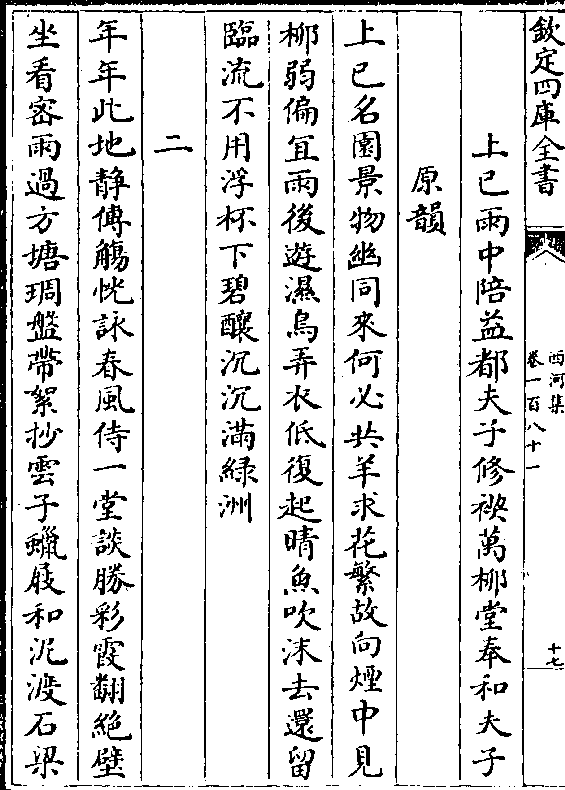 欽定四庫全書
西河集
卷一百八十一
十七
上巳雨中陪益都夫子修禊萬柳堂奉和夫子
原韻
上巳名園景物幽同來何必共羊求花繁故向煙中見
柳弱偏宜雨後遊濕鳥弄衣低復起晴魚吹沫去還留
臨流不用浮杯下碧釀沉沉滿綠洲
二
年年此地靜傳觴恍詠春風侍一堂談勝彩霞翻絶壁
坐看宻雨過方塘琱盤帶絮抄雲子蠟屐和泥渡石梁